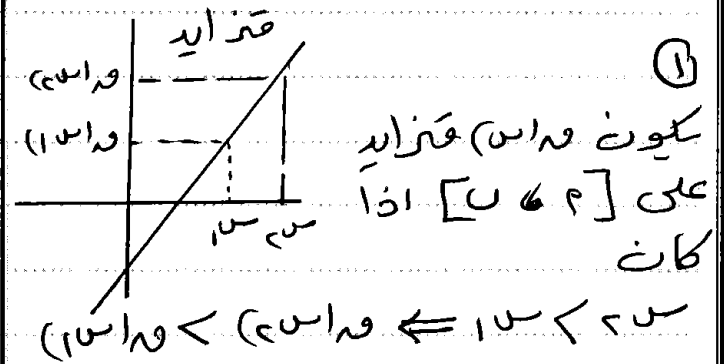 متزايد
ق(س٢)
ق(س١)
س١ س٢
①
يكون ق(س) متزايد
على [أ ، ب] اذا
كان
س٢ > س١ ⇐ ق(س٢) > ق(س١)